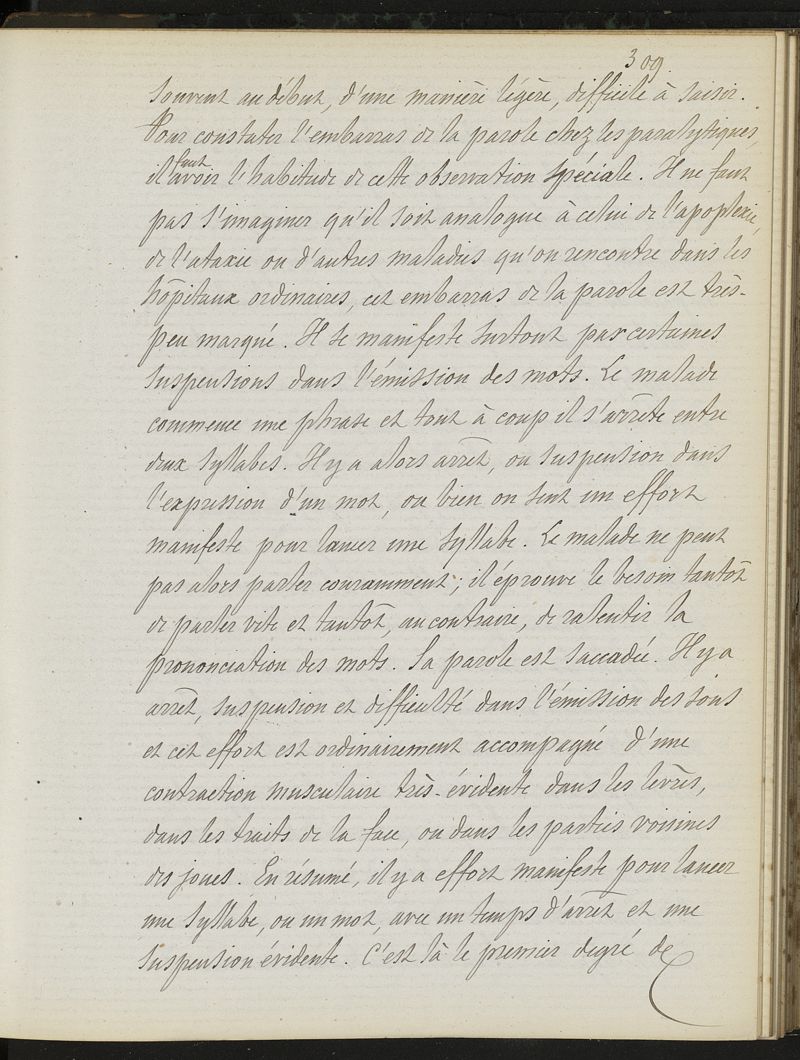 309
souvent au début, d'une manière légère, difficile à saisir.
Pour constater l'embarras de la parole chez les paralytiques,
il faut avoir l'habitude de cette observation spéciale. Il ne faut
pas s'imaginer qu'il soit analogue à celui de l'apoplexie,
de l'ataxie ou d'autres maladies qu'on rencontre dans les
hôpitaux ordinaires, cet embarras de la parole est très-
peu marqué. Il se manifeste surtout par certaines
suspensions dans l'émission des mots. Le malade
commence une phrase et tout à coup il s'arrête entre
deux syllabes. Il y a alors arrêt, ou suspension dans
l'expression d'un mot, ou bien on sent un effort
manifeste pour lancer une syllabe. Le malade ne peut
pas alors parler couramment; il éprouve le besoin tantôt
de parler vite et tantôt, au contraire, de ralentir la
prononciation des mots. Sa parole est saccadée. Il y a
arrêt, suspension et difficulté dans l'émission des sons
et cet effort est ordinairement accompagné d'une
contraction musculaire très-évidente dans les lèvres,
dans les traits de la face, ou dans les parties voisines
des joues. En résumé, il y a effort manifeste pour lancer
une syllabe, ou un mot, avec un temps d'arrêt et une
suspension évidente. C'est là le premier degré de